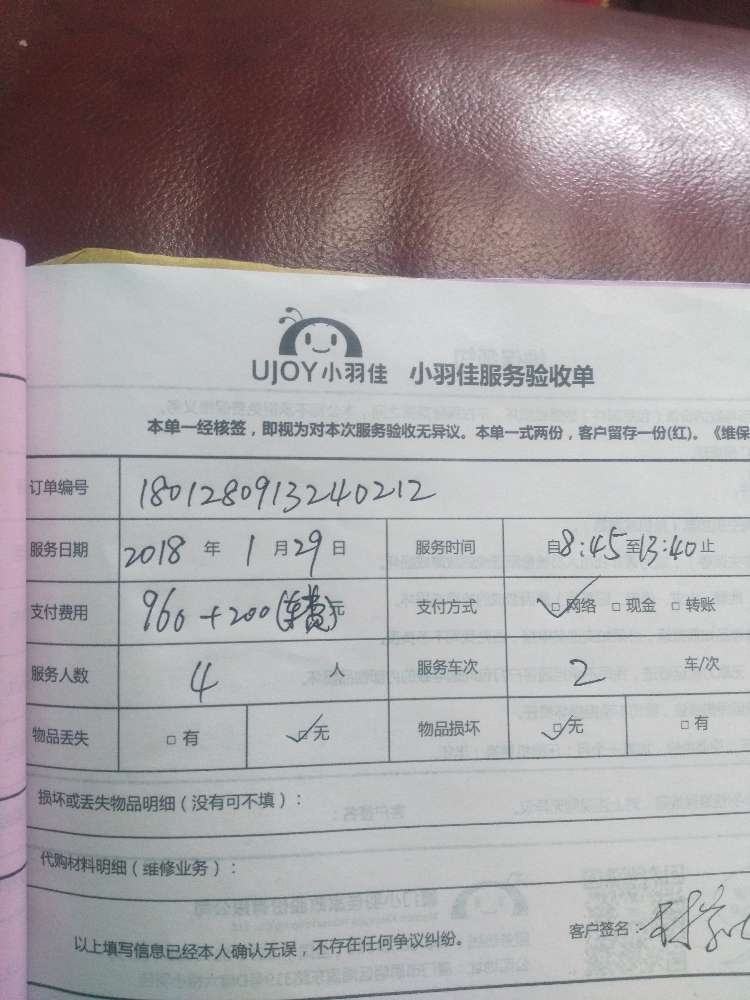 UJOY小羽佳 小羽佳服务验收单
本单一经核签，即视为对本次服务验收无异议。本单一式两份，客户留存一份(红)。《维保
订单编号 1801280913240212
服务日期 2018 年 1 月 29 日 服务时间 自8:45至13:40止
支付费用 960+200(车费)元 支付方式 ☑网络 □现金 □转账
服务人数 4 人 服务车次 2 车/次
物品丢失 □有 ☑无 物品损坏 ☑无 □有
损坏或丢失物品明细（没有可不填）：
代购材料明细（维修业务）：
以上填写信息已经本人确认无误，不存在任何争议纠纷。 客户签名：